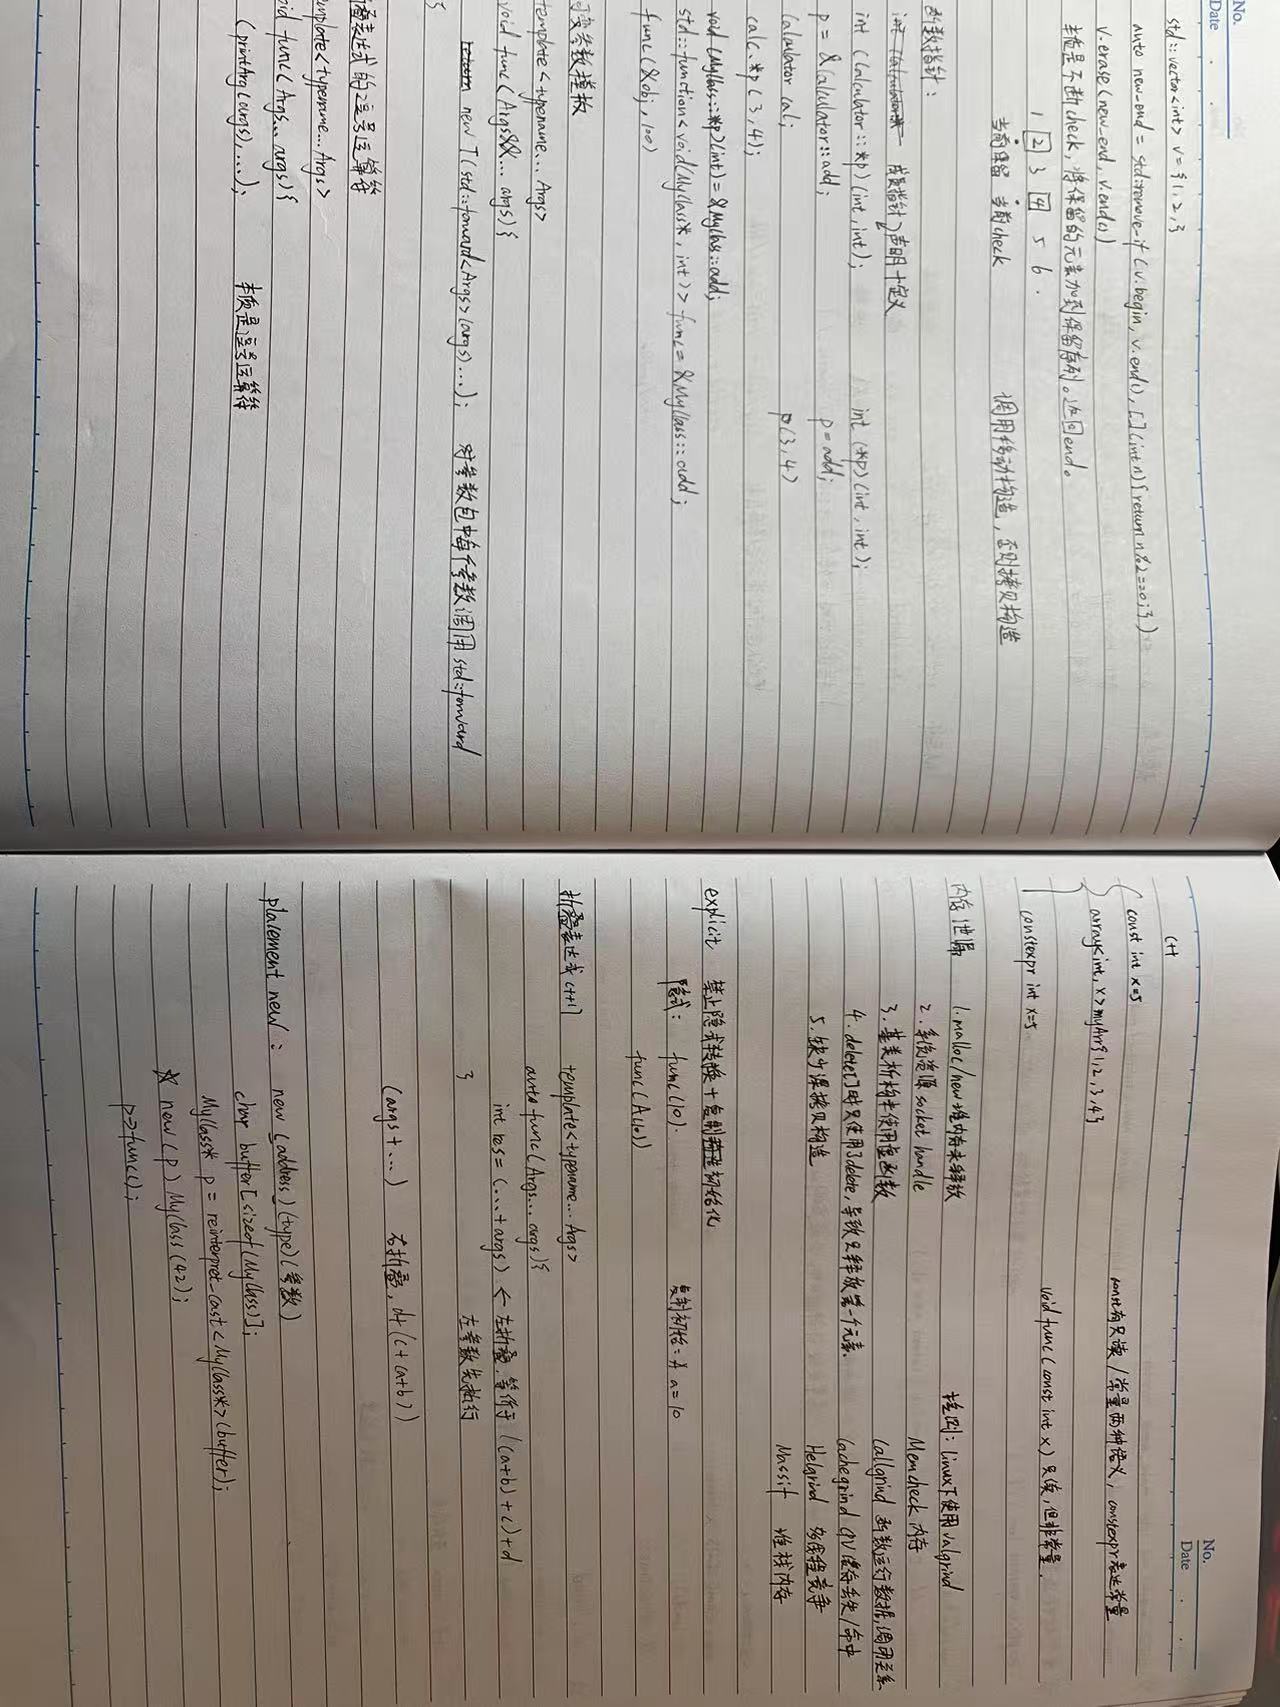 No.
Date
std::vector<int> v = {1,2,3
auto new_end = std::remove_if(v.begin, v.end(), [](int n){return n%2==0;})
v.erase(new_end, v.end())
本质是不断check,将保留的元素加到保留序列。返回end。
1 2 3 4 5 6 .
当前保留 当前check 调用移动构造,否则拷贝构造
函数指针:
成员指针 声明+定义
int (Calculator::*p)(int,int); int (*p)(int,int);
p = &Calculator::add; p=add;
Calculator cal; p(3,4)
calc.*p(3,4);
void (MyClass::*p)(int) = &MyClass::add;
std::function<void(MyClass*,int)> func = &MyClass::add;
func(&obj,100)
可变参数模板
template<typename... Args>
void func(Args&&... args){
new T(std::forward<Args>(args)...); 对参数包中每个参数调用std::forward
}
折叠表达式的逗号运算符
template<typename...Args>
void func(Args...args){
(printArg(args),...); 本质是逗号运算符
No.
Date
C++
const int x=5 const有只读/常量两种语义,constexpr表达常量
array<int,x>myArr{1,2,3,4} void func(const int x)只读,但非常量.
constexpr int x=5
内存泄漏 1.malloc/new堆内存未释放 检测:linux下使用valgrind
2.系统资源socket handle Memcheck 内存
3.基类析构未使用虚函数 Callgrind 函数运行数据,调用关系
4.delete[]时只使用了delete,导致只释放第一个元素. Cachegrind CPU缓存丢失/命中
5.缺少深拷贝构造 Helgrind 多线程竞争
Massif 堆栈内存
explicit 禁止隐式转换+复制初始化
隐式: func(10). 复制初始=A a=10
func(A(10))
折叠表达式 C++17 template<typename...Args>
auto func(Args...args){
int res = (...+args) ← 左折叠,等价于((a+b)+c)+d
} 左参数先执行
(args+...) 右折叠, d+(c+(a+b))
placement new: new (address)(type)(参数)
char buffer[sizeof(MyClass)];
MyClass* p = reinterpret_cast<MyClass*>(buffer);
☆ new(p)MyClass(42);
p->func();